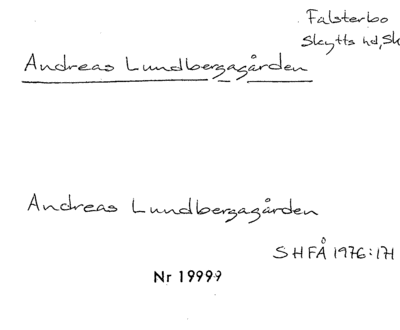 Falsterbo
Skytts hd, Sk
Andreas Lundbergagården
Andreas Lundbergagården
SHFÅ 1976:171
Nr 19999